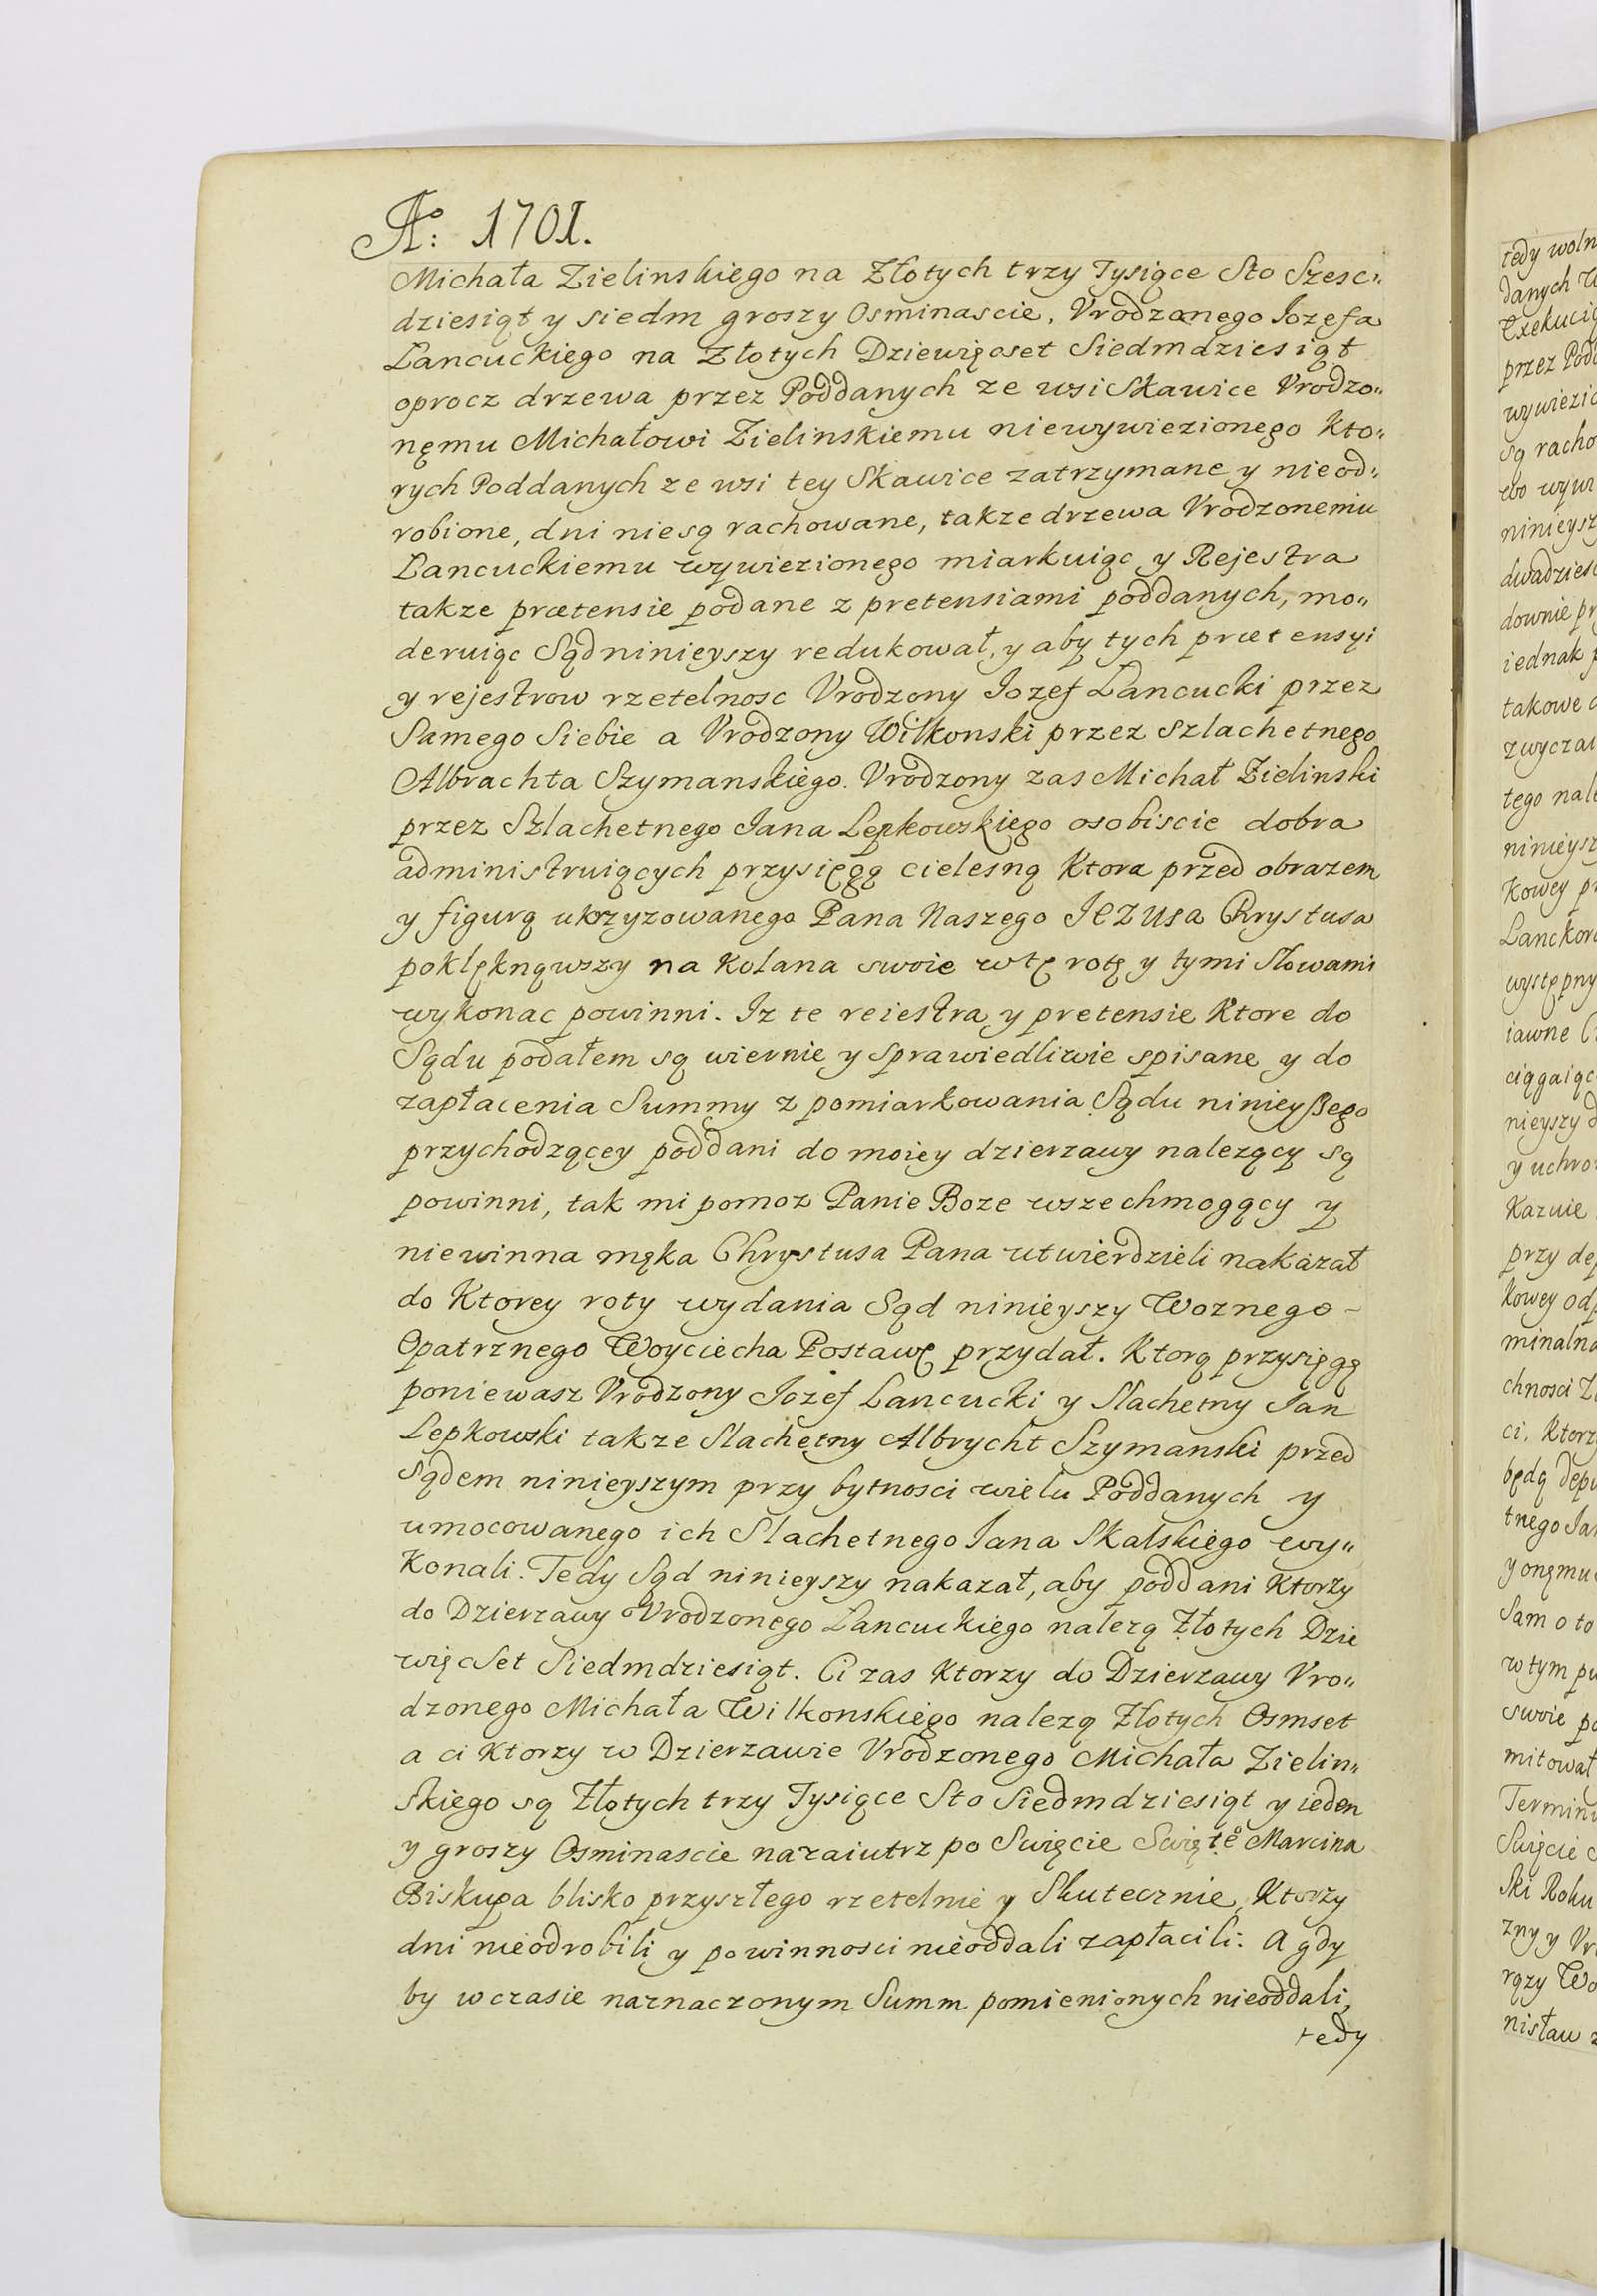 Aº: 1701.
Michała Zielinskiego na Złotych trzy Tysiące Sto Szesc„
dziesiąt y siedm groszy Osminascie, Vrodzonego Iozefa
Lancuckiego na Złotych Dziewięcset Siedmdziesiąt
oprocz drzewa przez Poddanych ze wsi Skawice Vrodzo„
nęmu Michałowi Zielinskiemu niewywiezionego Kto„
rych Poddanych ze wsi tey Skawice zatrzymane y nieod„
robione, dni niesą rachowane, takze drzewa Vrodzonemu
Lancuckiemu wywiezionego miarkuiąc y Rejestra
takze prætensie podane z pretensiami poddanych, mo„
deruiąc Sąd ninieyszy redukował, y aby tych prætensyi
y rejestrow rzetelnosc Vrodzony Iozef Lancucki przez
Samego Siebie a Vrodzony Wilkonski przez szlachetnego
Albrachta Szymanskiego. Vrodzony zas Michał Zielinski
przez Szlachetnego Iana Lepkowskiego osobiscie dobra
administruiących przysięgą cielesną Ktora przed obrazem
y figurą ukrzyzowanego Pana Naszego IEZUSa Chrystusa
poklęknąwszy na Kolana swoie w tę rotę y tymi Słowami
wykonac powinni. Iz te reiestra y pretensie Ktore do
Sądu podałem są wiernie y sprawiedliwie spisane y do
zapłacenia Summy z pomiarkowania Sądu ninieyßego
przychodzącey poddani do moiey dzierzawy nalezący są
powinni, tak mi pomoz Panie Boze wszechmogący y
niewinna męka Chrystusa Pana utwierdzieli nakazał
do Ktorey roty wydania Sąd ninieyszy Woznego-
Opatrznego Woyciecha Postawę przydał. Ktorą przysięgę
poniewasz Vrodzony Iozef Lancucki y Slachetny Ian
Lepkowski takze Slachetny Albrycht Szymanski przed
Sądem ninieyszym przy bytnosci wielu Poddanych y
umocowanego ich Slachetnego Iana Skalskiego wy„
Konali. Tedy Sąd ninieyszy nakazał, aby poddani Ktorzy
do Dzierzawy Vrodzonego Lancuckiego nalezą Złotych Dzie
więcSet Siedmdziesiąt. Ci zas Ktorzy do Dzierzawy Vro„
dzonego Michała Wilkonskiego nalezą Złotych Osmset
a ci Ktorzy w Dzierzawie Vrodzonego Michała Zielin„
skiego są Złotych trzy Tysiące Sto Siedmdziesiąt y ieden
y groszy Osminascie nazaiutrz po Swięcie Swiętº Marcina
Biskupa blisko przyszłego rzetelnie y Skutecznie, Ktorzy
dni nieodrobili y powinnosci nieoddali zapłacili. A gdy
by wczasie naznaczonym Summ pomienionych nieoddali,
tedy
tedy woln
danych
Exekucią
przez Pod
wywiezi
są racho
ninieysz
dwadzies
downie pr
iednak p
takowe
zwyczai
tego nal
ninieysz
Kowey p
Lanckor
występny
iawne
ciągaiąc
nieyszy
y uchro
Kazuie
przy de
kowey od
minalna
chnosci
ci, Ktorz
będą depu
tnego Ian
y onęmu
Sam o to
w tym pu
swoie po
mitował
Termin
Swięcie
ski Roku
zny y Vr
rązy Wo
nisław